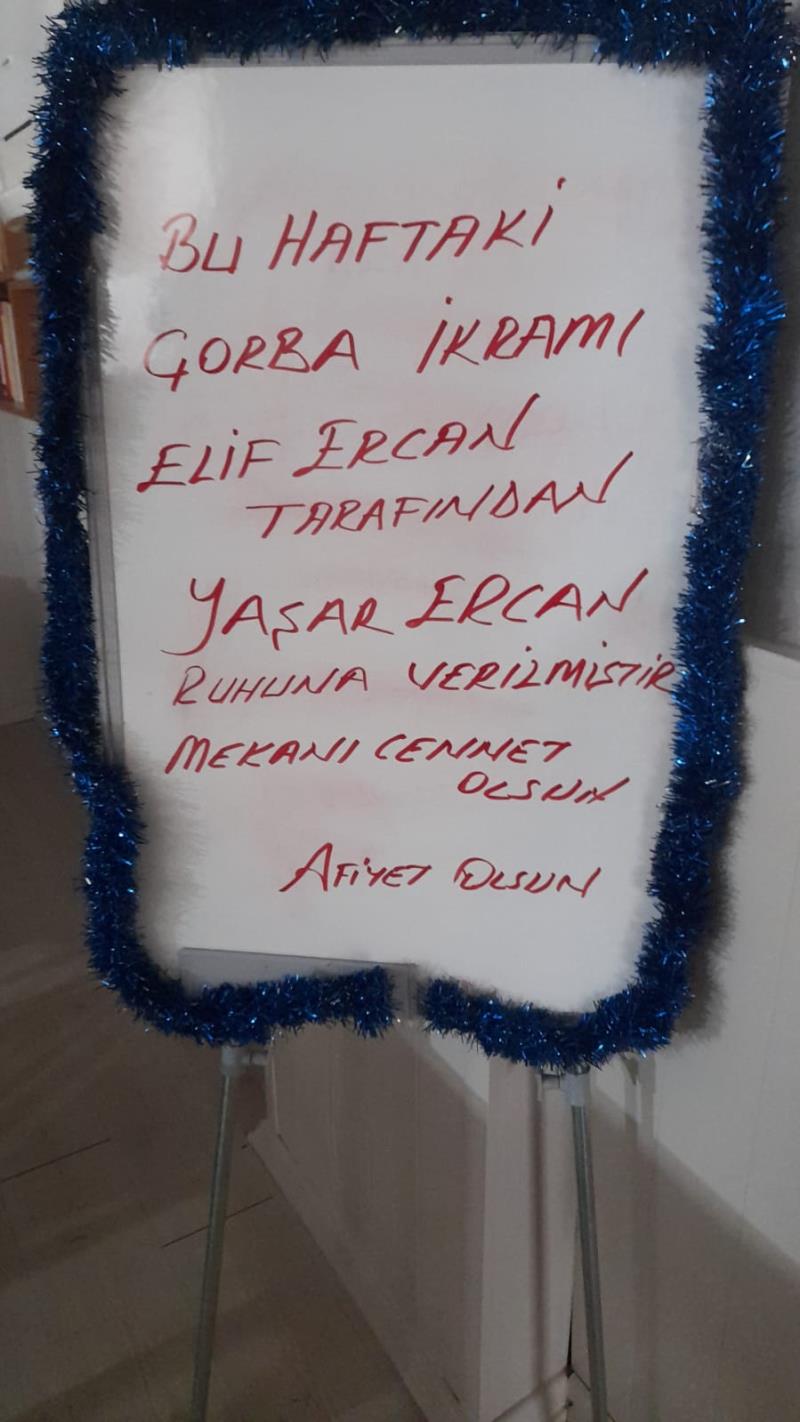 BU HAFTAKİ
ÇORBA İKRAMI
ELİF ERCAN
TARAFINDAN
YAŞAR ERCAN
RUHUNA VERİLMİŞTİR
MEKANI CENNET
OLSUN
AFİYET OLSUN